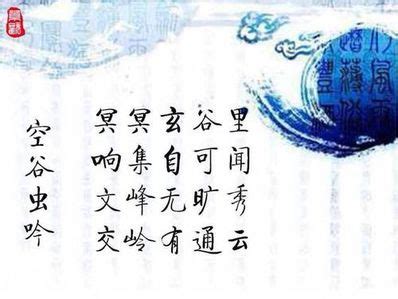 里闻秀云
谷可旷通
玄自无有
冥集峰岭
冥响文交
空谷虫吟